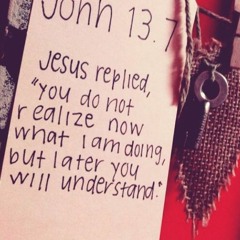 John 13.7
Jesus replied,
"you do not
realize now
what I am doing,
but later you
will understand."